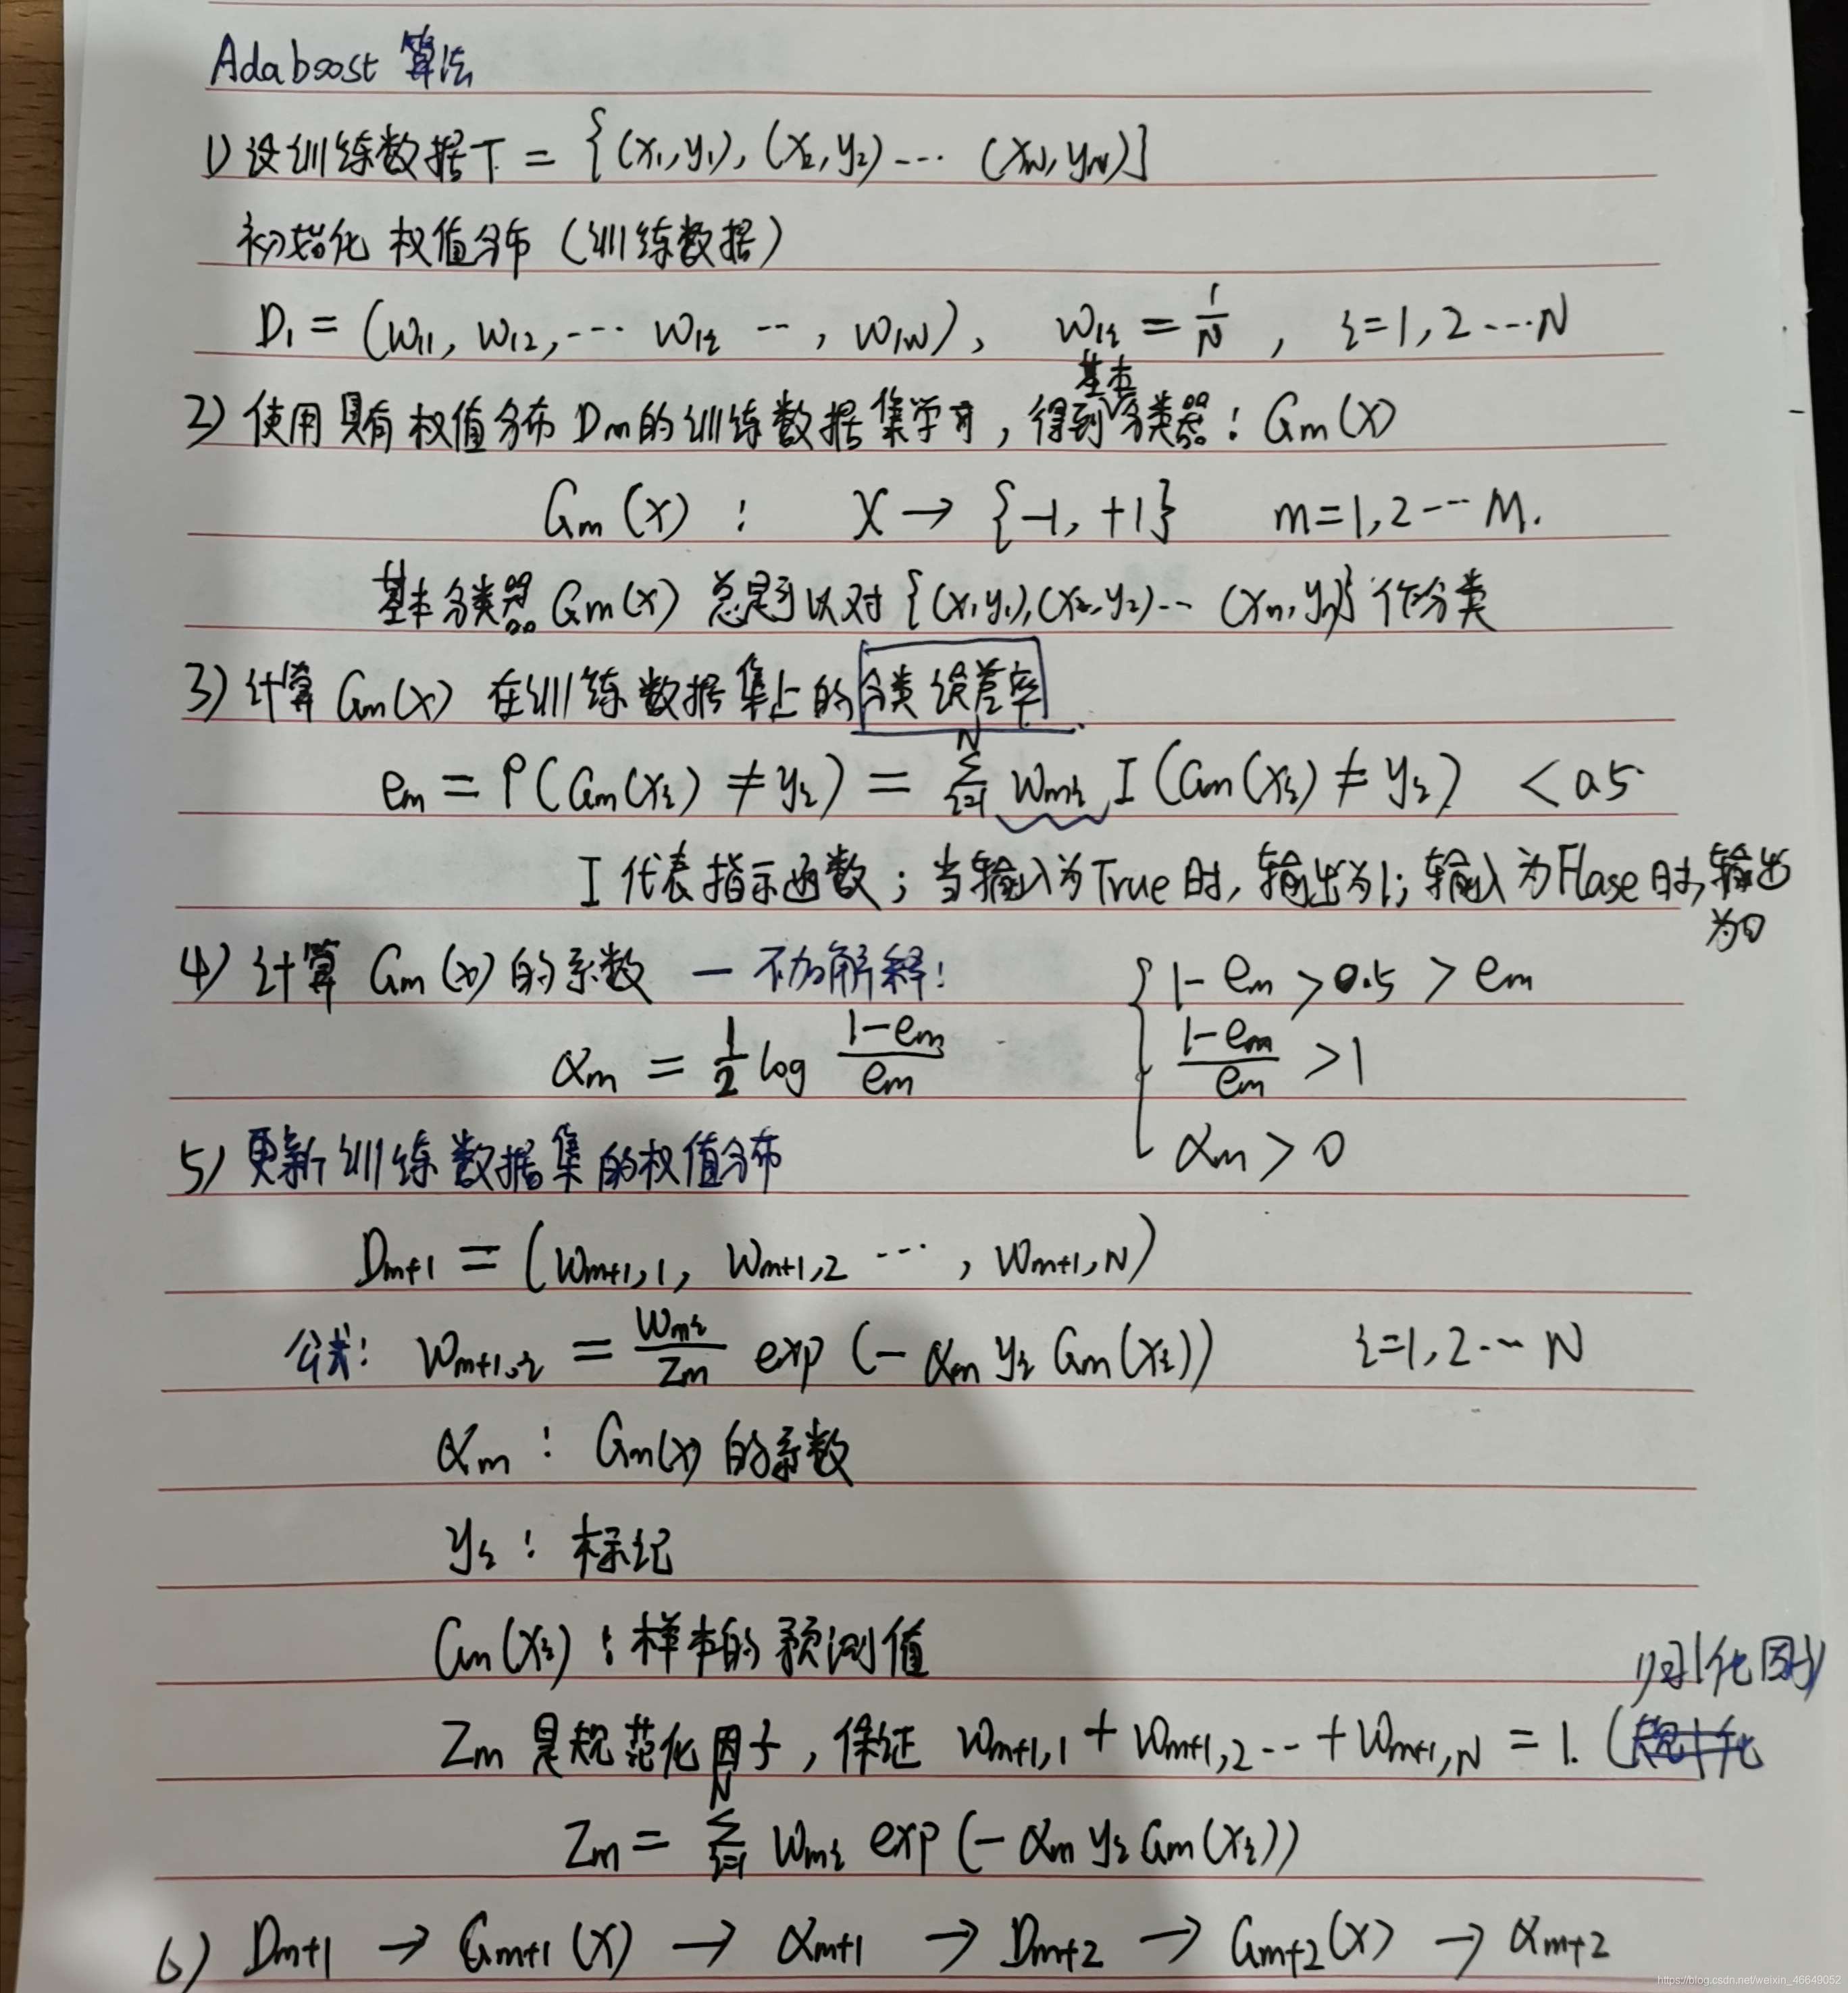 Adaboost 算法
1) 设训练数据T = {(x₁,y₁), (x₂,y₂)... (x_N,y_N)}
初始化 权值分布 (训练数据)
D₁ = (w₁₁, w₁₂, ... w₁ᵢ ..., w₁N), w₁ᵢ = 1/N , i=1,2...N
2) 使用具有权值分布Dm的训练数据集学习, 得到基本分类器: Gm(x)
Gm(x) : X → {-1, +1} m=1,2...M.
基本分类器Gm(x) 总是可以对{(x₁,y₁),(x₂,y₂)... (xn,yn)}作分类
3) 计算Gm(x) 在训练数据集上的分类误差率.
em = P(Gm(xᵢ) ≠ yᵢ) = Σ_{i=1}^{N} wmᵢ I(Gm(xᵢ) ≠ yᵢ) < 0.5
I 代表指示函数; 当输入为True时, 输出为1; 输入为Flase时, 输出
为0
4) 计算 Gm(x) 的系数 — 不加解释!
αm = 1/2 log (1-em)/em
{ 1-em > 0.5 > em
(1-em)/em > 1
αm > 0
5) 更新训练数据集的权值分布
Dm+1 = (wm+1,1, wm+1,2 ..., wm+1,N)
公式: wm+1,i = wmi/Zm exp(-αm yᵢ Gm(xᵢ)) i=1,2...N
αm : Gm(x) 的系数
yᵢ : 标记
Gm(xᵢ) : 样本的预测值
Zm 是规范化因子, 保证 wm+1,1 + wm+1,2 ... + wm+1,N = 1. (
归一化因子)
Zm = Σ_{i=1}^{N} wmi exp(-αm yᵢ Gm(xᵢ))
6) Dm+1 → Gm+1(x) → αm+1 → Dm+2 → Gm+2(x) → αm+2
https://blog.csdn.net/weixin_46649052